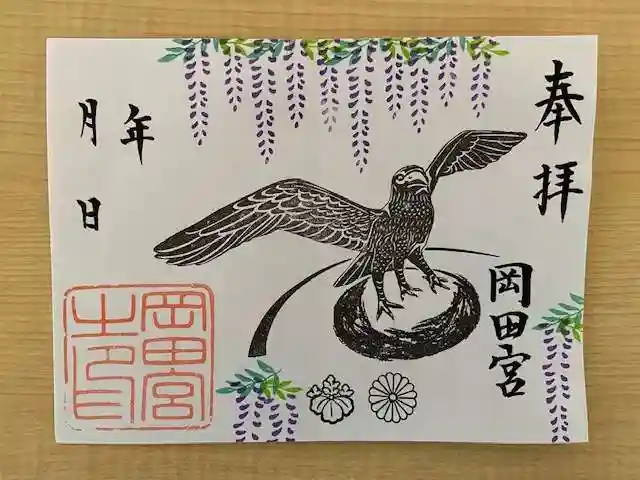 奉拝
岡田宮
年
月日
岡田宮
之印